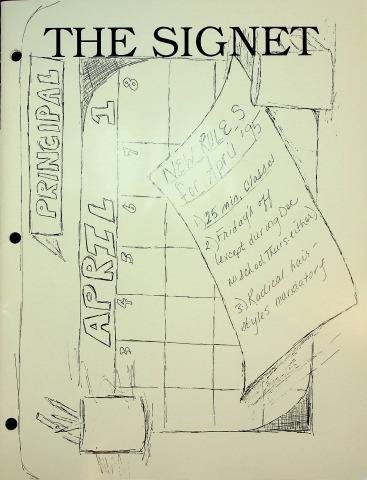 THE SIGNET
PRINCIPAL
APRIL 1
8
7
6
5
4
3
NEW RULES
for April '95
1) 25 min. classes
2) Fridays off
(except during Dec
no school Thurs. either)
3) Radical hair-
styles mandatory